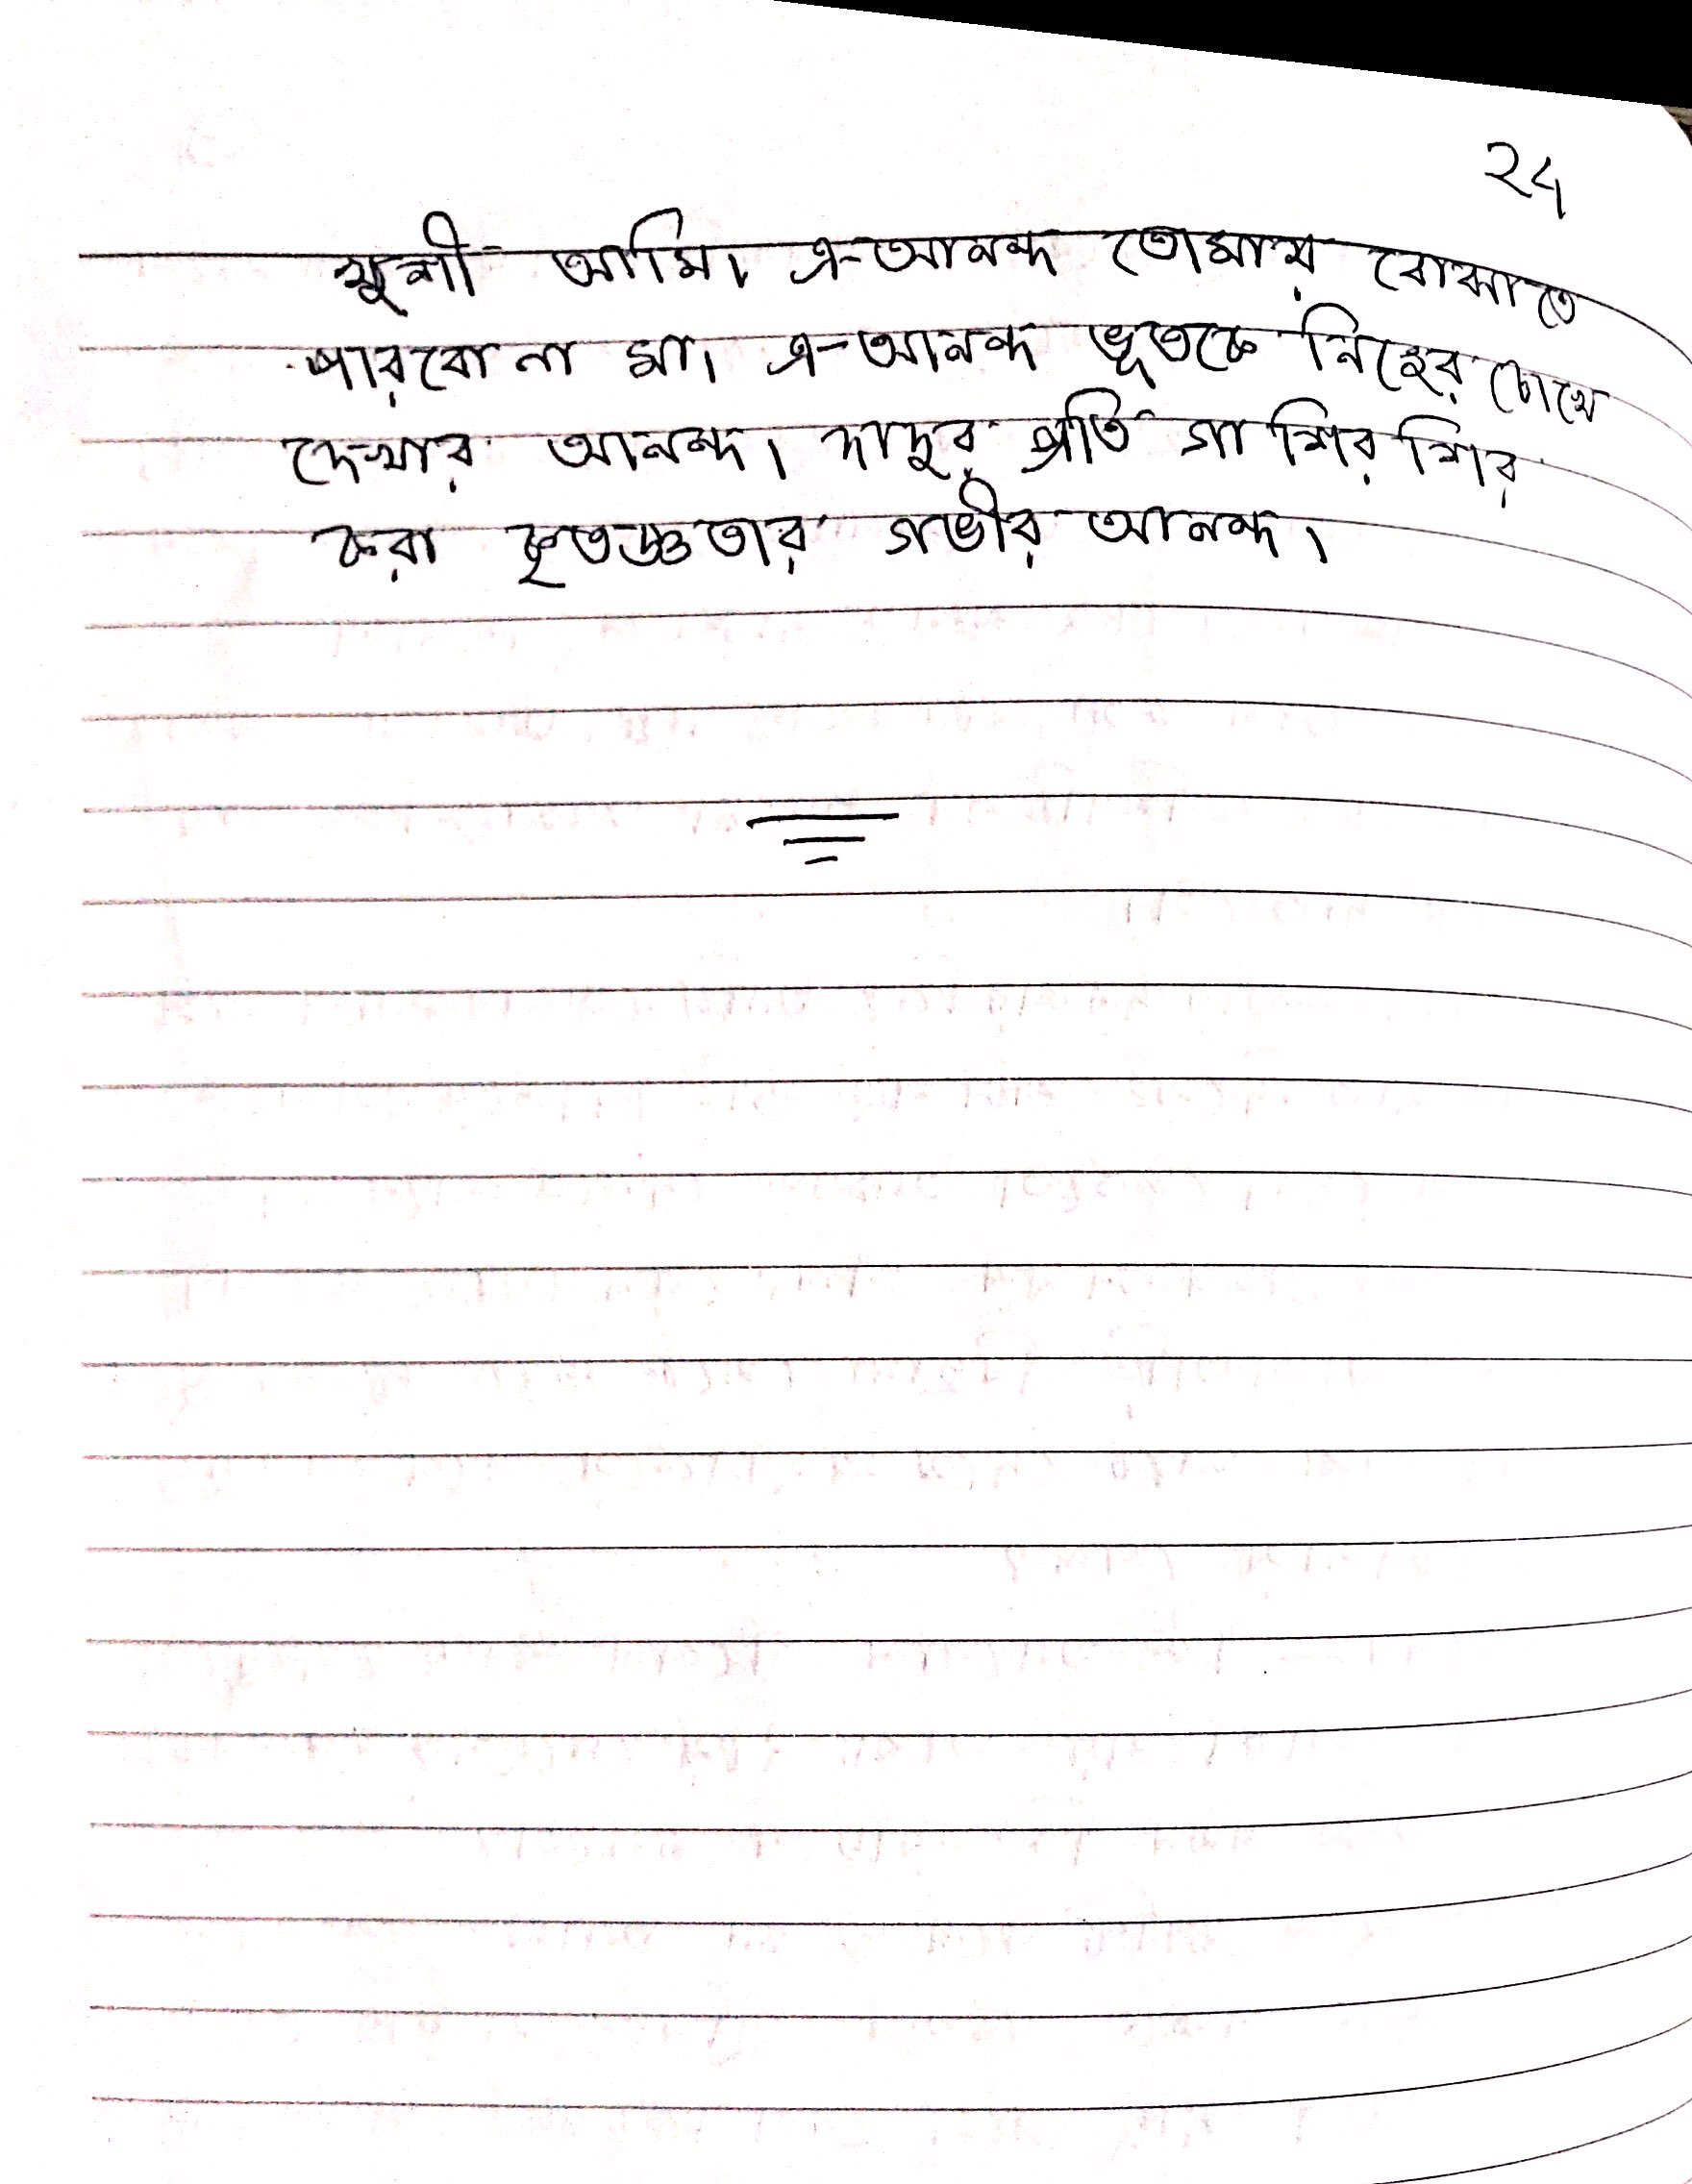 ২৫
খুশী আমি। এ-আনন্দ তোমায় বোঝাতে
পারবো না মা। এ-আনন্দ ভূতকে নিজের চোখে
দেখার আনন্দ। দাদুর প্রতি গা শির শির
করা কৃতজ্ঞতার গভীর আনন্দ।